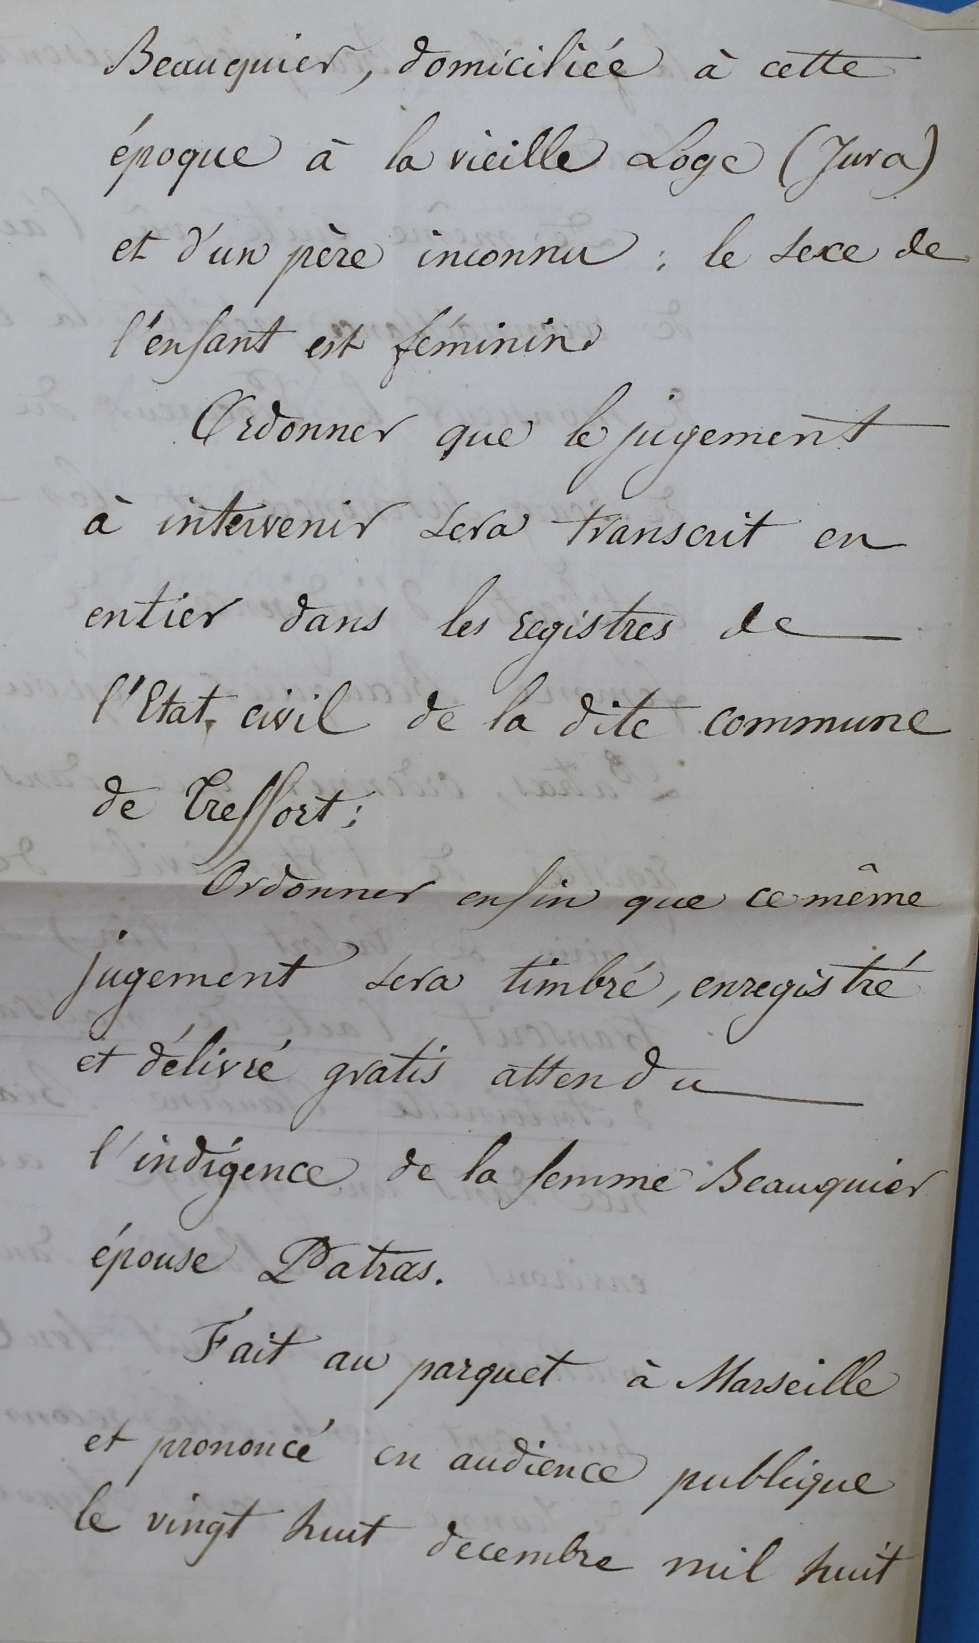 Beauquier, domiciliée à cette
époque à la vieille Loge (Jura)
et d'un père inconnu ; le sexe de
l'enfant est féminin.
Ordonner que le jugement
à intervenir sera transcrit en
entier dans les registres de
l'Etat, civil de la dite commune
de Treffort ;
Ordonner enfin que ce même
jugement sera timbré, enregistré
et délivré gratis attendu
l'indigence de la femme Beauquier
épouse Patras.
Fait au parquet à Marseille
et prononcé en audience publique
le vingt huit decembre mil huit